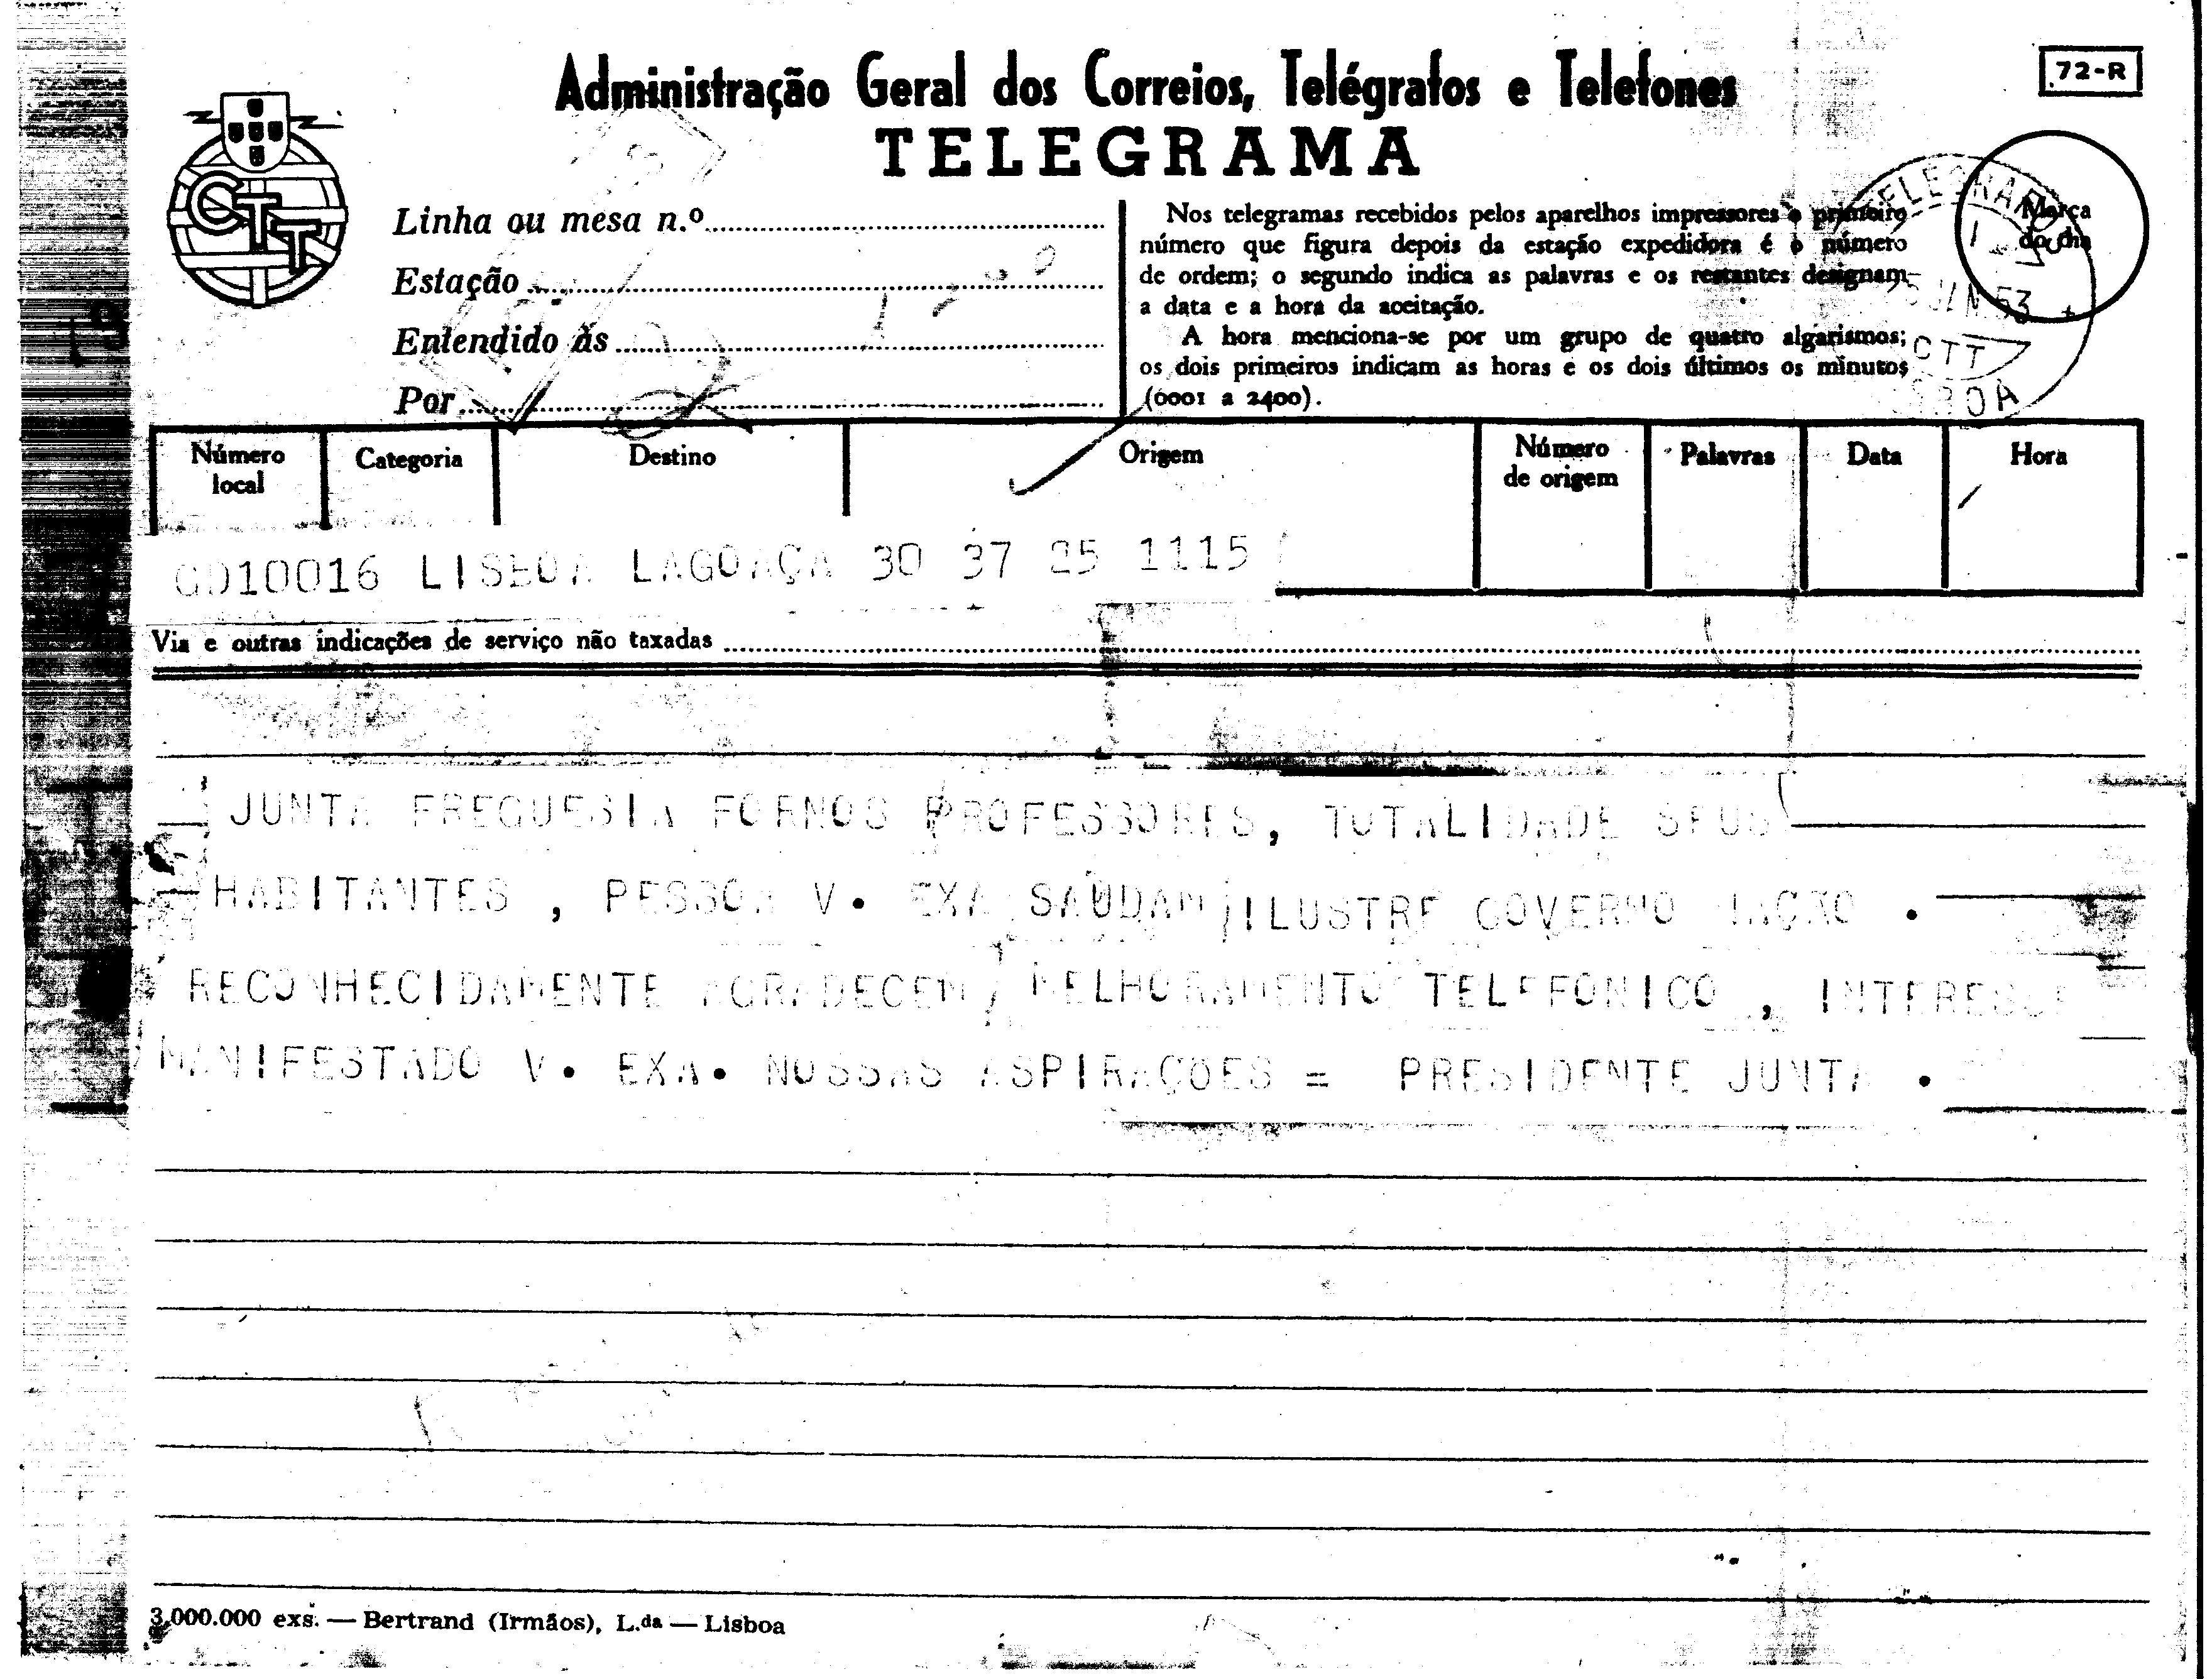 Administração Geral dos Correios, Telégrafos e Telefones
72-R
TELEGRAMA
CTT
Linha ou mesa n.º
Estação
Entendido às
Por
Nos telegramas recebidos pelos aparelhos impressores o primeiro
número que figura depois da estação expedidora é o número
de ordem; o segundo indica as palavras e os restantes designam
a data e a hora da aceitação.
A hora menciona-se por um grupo de quatro algarismos;
os dois primeiros indicam as horas e os dois últimos os minutos
(0001 a 2400).
Marca
do dia
CTT
Número local
Categoria
Destino
Origem
Número de origem
Palavras
Data
Hora
GD10016 LISBOA LAGOAÇA 30 37 25 1115
Via e outras indicações de serviço não taxadas
JUNTA FREGUESIA FORNOS PROFESSORES, TOTALIDADE SEUS
HABITANTES , PESSOA V. EXA SAUDAM ILUSTRE GOVERNO NAÇÃO .
RECONHECIDAMENTE AGRADECEM MELHORAMENTO TELEFONICO , INTERESSE
MANIFESTADO V. EXA. NOSSAS ASPIRAÇOES = PRESIDENTE JUNTA .
3.000.000 exs. — Bertrand (Irmãos), L.da — Lisboa